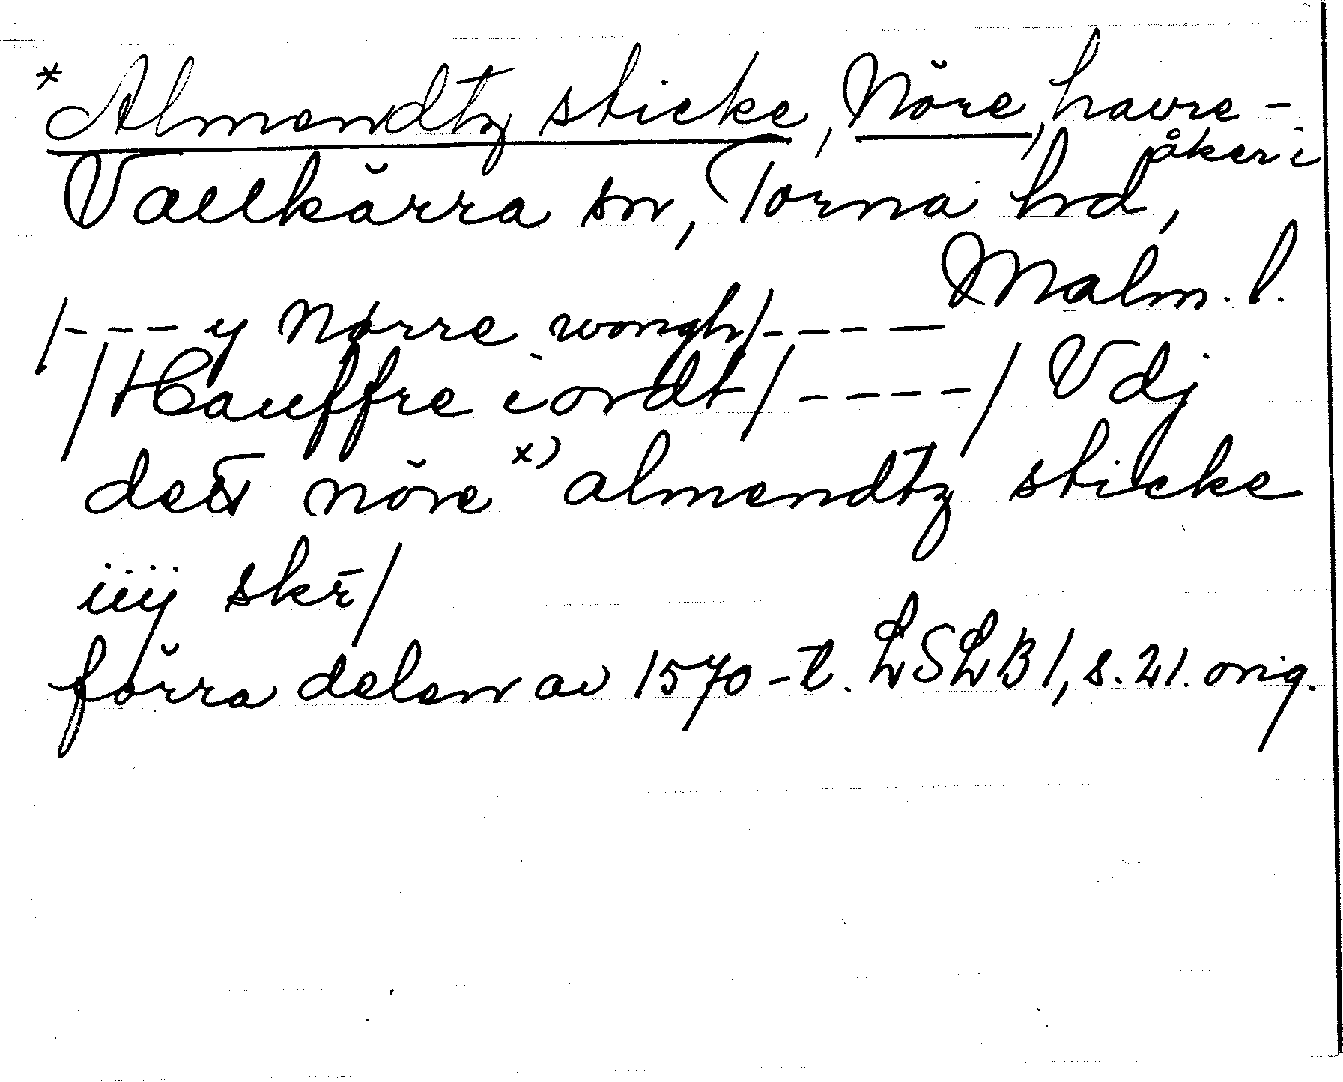 *Almendtz sticke, Nöre, havre-
åker i
Vallkärra sn, Torna hd,
Malm. l.
/---y Nørre wongh/-----
/Hauffre iordt/----/ Vdj
dett nöre x) almendtz sticke
iiij skr̄/
förra delen av 1570-t. LSLB 1, s. 21. orig.